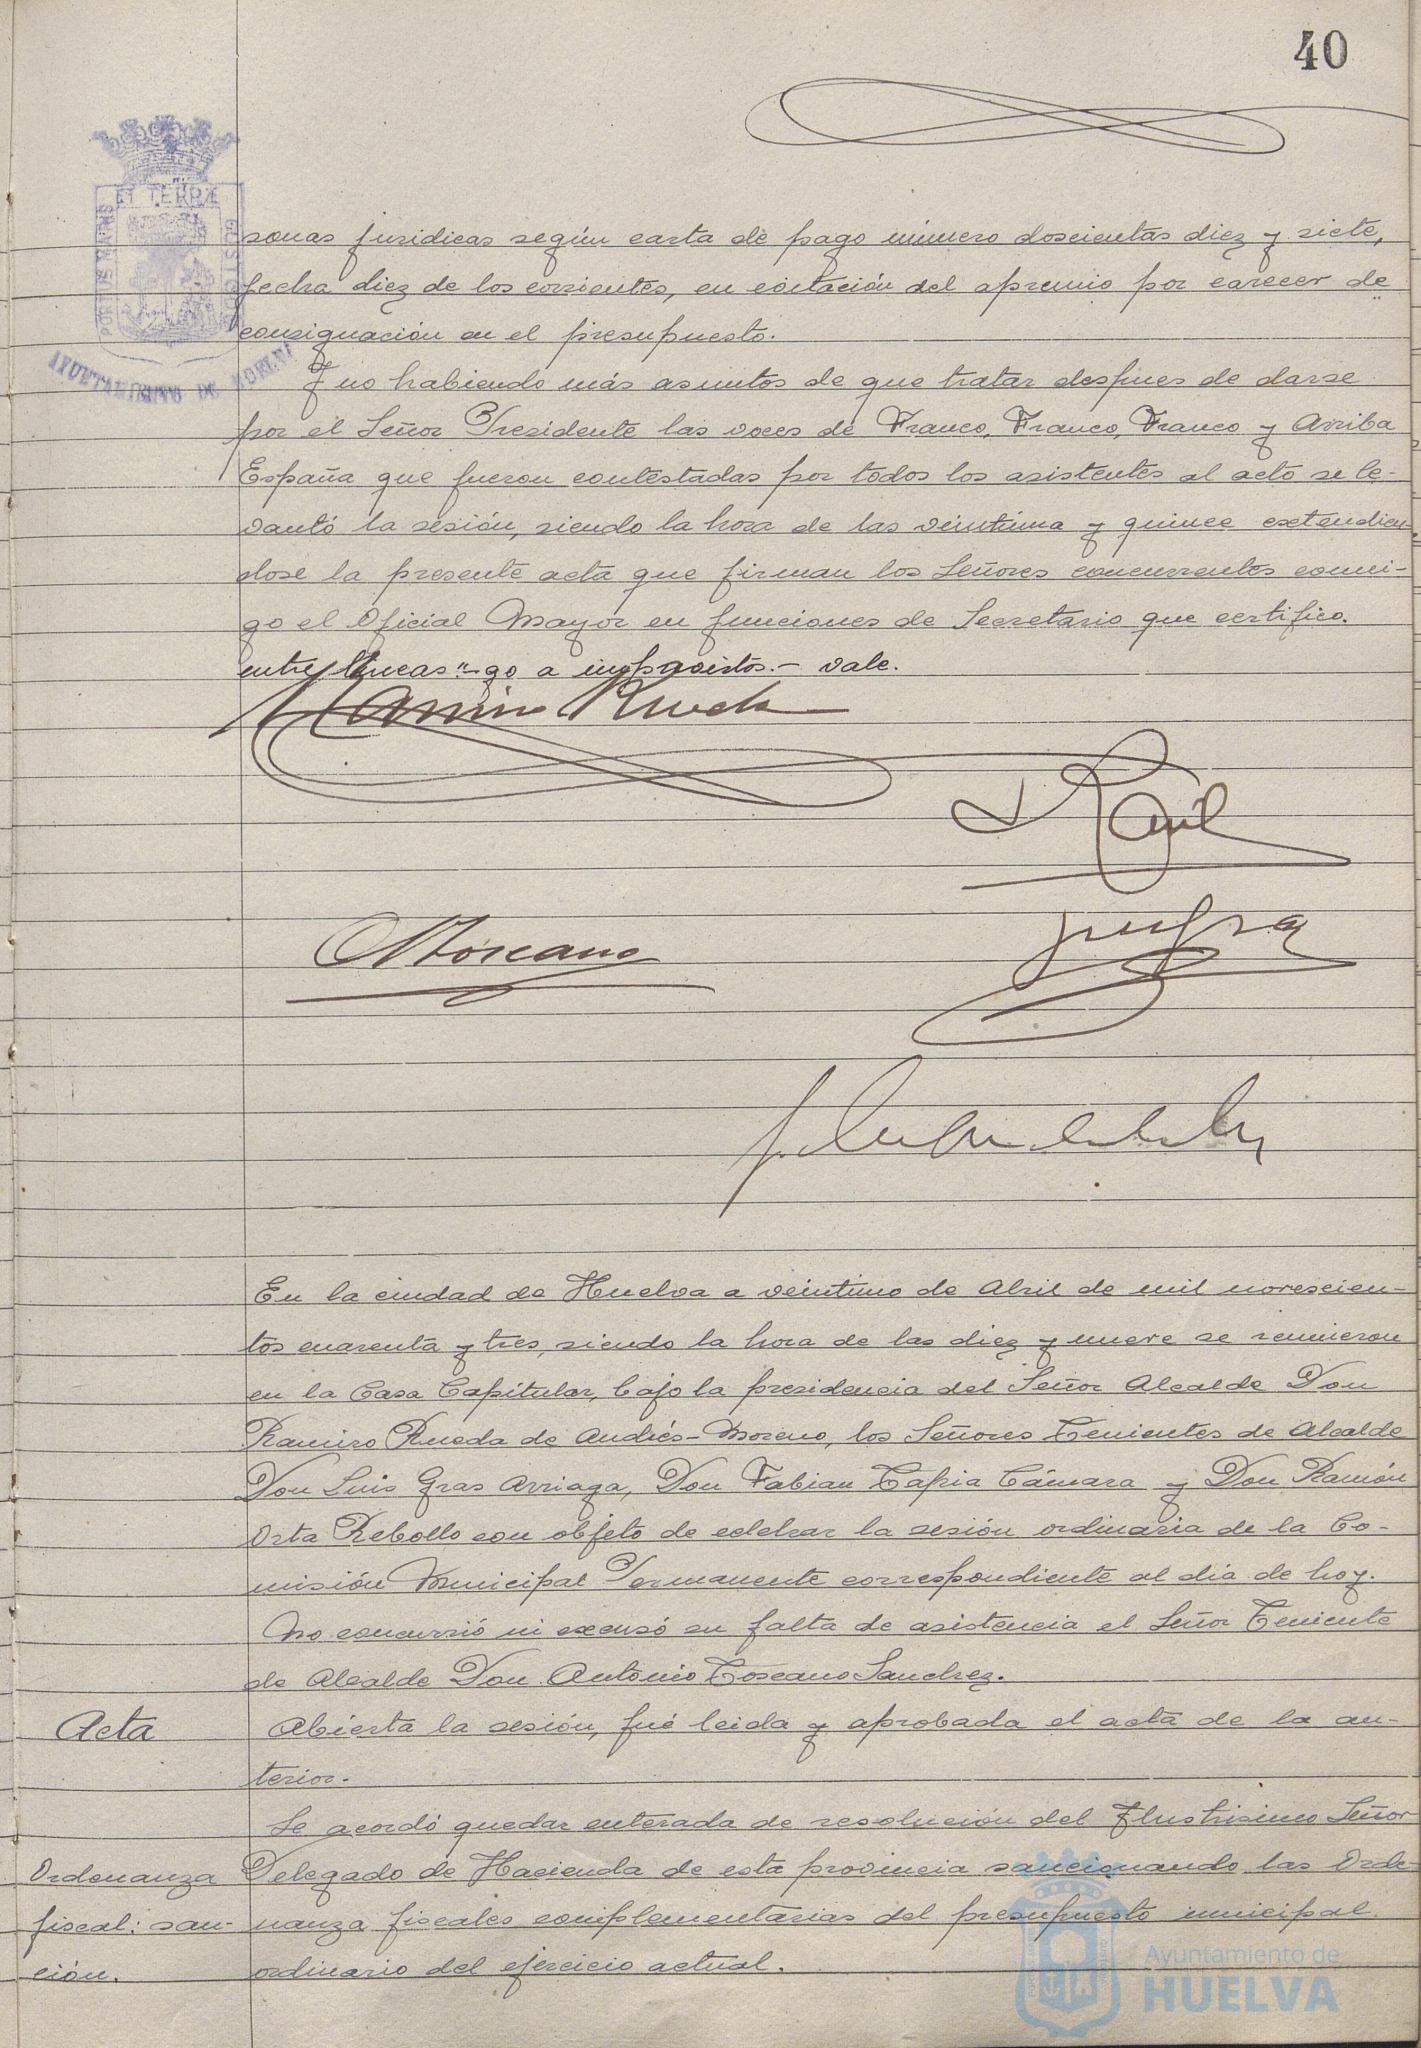 40
ET TERRÆ
PORTUS MARIS
CUSTODIA
AYUNTAMIENTO DE HUELVA
sonas juridicas según carta de pago número doscientas diez y siete,
fecha diez de los corrientes, en evitación del apremio por carecer de
consignación en el presupuesto.
Y no habiendo más asuntos de que tratar despues de darse
por el Señor Presidente las voces de Franco, Franco, Franco y Arriba
España que fueron contestadas por todos los asistentes al acto se le-
vantó la sesión, siendo la hora de las veintiuna y quince extendien-
dose la presente acta que firman los Señores concurrentes conmi-
go el Oficial Mayor en funciones de Secretario que certifico.
entre lineas "-go a imprevistos.- vale.
Ramiro Rueda
Toscano
En la ciudad de Huelva a veintiuno de Abril de mil novescien-
tos cuarenta y tres, siendo la hora de las diez y nueve se reunieron
en la Casa Capitular, bajo la presidencia del Señor Alcalde Don
Ramiro Rueda de Andrés-Moreno, los Señores Tenientes de Alcalde
Don Luis Gras Arriaga, Don Fabian Tapia Cámara y Don Ramón
Orta Rebollo con objeto de celebrar la sesión ordinaria de la Co-
misión Municipal Permanente correspondiente al dia de hoy.
No concurrió ni excusó su falta de asistencia el Señor Teniente
de Alcalde Don Antonio Toscano Sanchez.
Acta
Abierta la sesión, fué leida y aprobada el acta de la an-
terior.
Se acordó quedar enterada de resolución del Ilustrisimo Señor
Ordenanza
Delegado de Hacienda de esta provincia sancionando las Orde-
fiscal: san-
nanza fiscales complementarias del presupuesto municipal
ción.
ordinario del ejercicio actual.
Ayuntamiento de
HUELVA